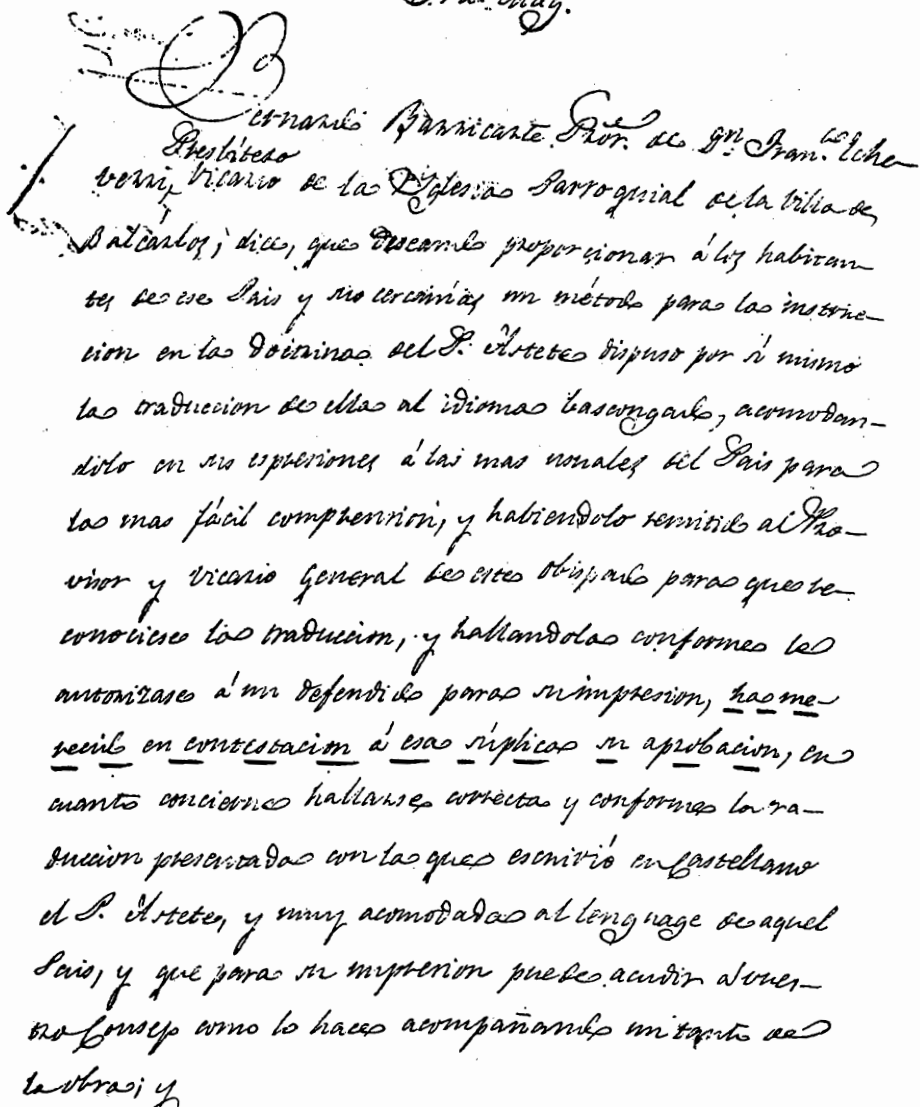 S. M. Mag.
Bernardo Barricarte Pror. de Dn. Franco. Eche-
Presbitero
verri, Vicario de la Yglesia Parroquial de la Villa de
Balcarlos; dice, que deseando proporcionar á los habitan-
tes de ese Pais y sus cercanías un método para la instruc-
cion en la Doctrina del P. Astete dispuso por si mismo
la traduccion de ella al idioma bascongado, acomodan-
dolo en sus espresiones á las mas usuales del Pais para
la mas fácil comprension, y habiendolo remitido al Pro-
visor y Vicario General de este obispado para que re-
conociese la traduccion, y hallandola conforme le
autorizase á mi defendido para su impresion, ha me-
recido en contestacion á esa súplica su aprobacion, en
cuanto concierne hallarse correcta y conforme la tra-
duccion presentada con la que escrivió en Castellano
el P. Astete, y muy acomodada al lenguage de aquel
Pais, y que para su impresion puede acudir á vues-
tro Consejo como lo hace acompañando un tanto de
la obra; y